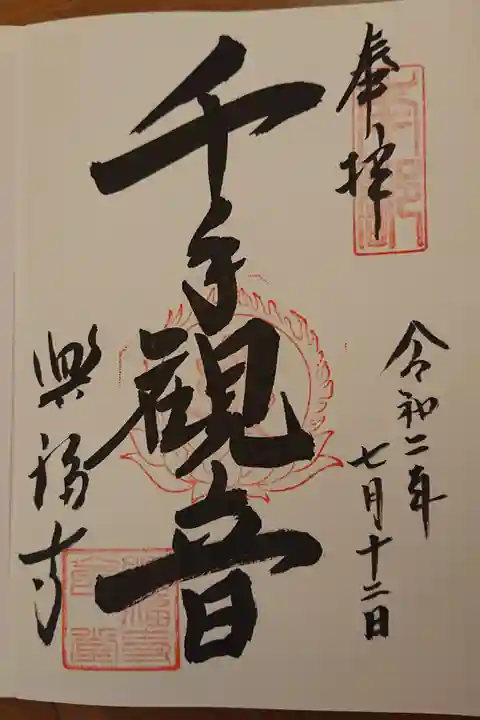 奉拝
令和二年
七月十二日
千手観音
興福寺